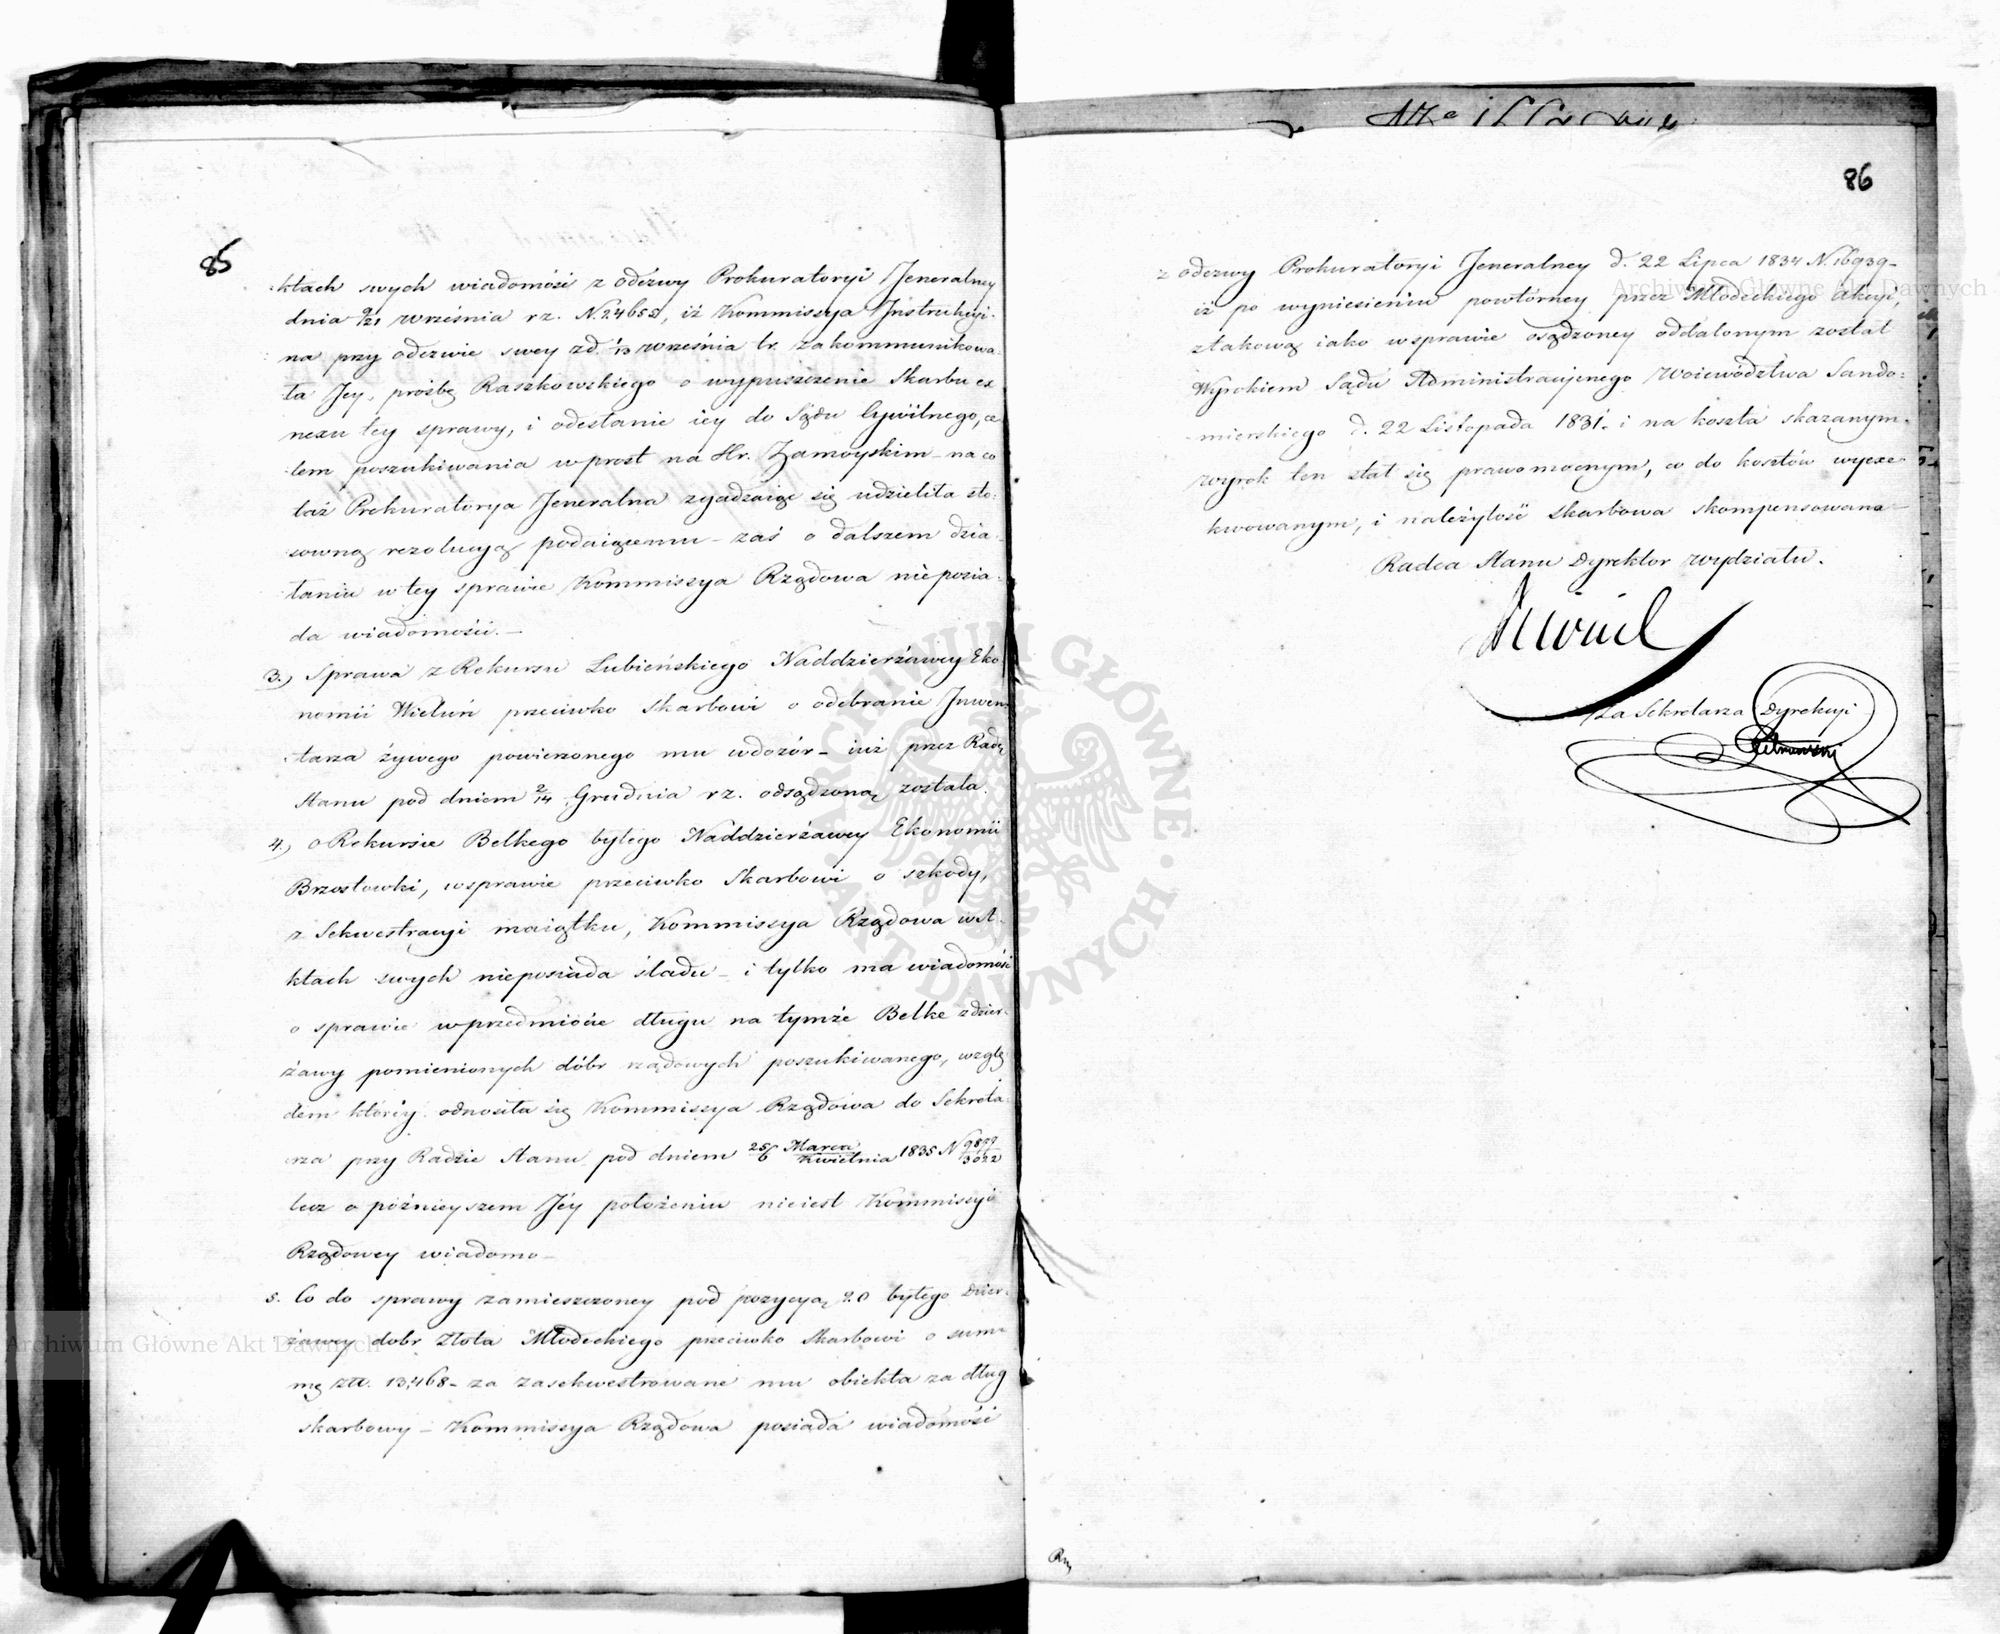 85
ktach swych wiadomość z odezwy Prokuratoryi Jeneralney
dnia 9/21 Września rz. N. 24652, iż Kommissya Instrukcyi-
na przy odezwie swey zd. 1/13 Września br. zakommunikowa-
ła Jey, prośbę Raszkowskiego o wypuszczenie Skarbu ex
nexu tey sprawy, i odesłanie iey do Sądu Cywilnego, ce-
lem poszukiwania wprost na Hr. Zamoyskim - na co
taż Prokuratorya Jeneralna zgadzaiąc się udzieliła sto-
sowną rezolucyą podaiącemu - zaś o dalszem dzia-
łaniu w tey sprawie Kommissya Rządowa nieposia-
da wiadomości. -
3.) Sprawa z Rekursu Lubieńskiego Naddzierżawcy Eko-
nomii Wieluń przeciwko Skarbowi o odebranie Inwen-
tarza żywego powierzonego mu w dozór - iuż przez Radę
Stanu pod dniem 2/14 Grudnia rz. odsądzoną została.
4.) o Rekursie Belkego byłego Naddzierżawcy Ekonomii
Brzostowki, w sprawie przeciwko Skarbowi o szkody,
z Sekwestracyi maiątku, Kommissya Rządowa w A-
ktach swych nieposiada śladu - i tylko ma wiadomość
o sprawie w przedmiocie długu na tymże Belke z dzier-
żawy pomienionych dóbr rządowych poszukiwanego, wzglę-
dem któréy odnosiła się Kommissya Rządowa do Sekreta-
rza przy Radzie Stanu pod dniem 25/6 Marca/Kwietnia 1835 N 9899/3022
lecz o poźnieyszem Jéy położeniu nieiest Kommissyi
Rządowey wiadomo -
5. Co do sprawy zamieszczoney pod pozycyą 20 byłego Dzier-
żawcy dobr Złota Młodeckiego przeciwko Skarbowi o sum-
mę złł. 13,468 - za zasekwestrowane mu obiekta za dług
skarbowy - Kommissya Rządowa posiada wiadomość
86
z odezwy Prokuratoryi Jeneralney d. 22 Lipca 1834 N. 16939 -
iż po wyniesieniu powtórney przez Młodeckiego akcyi,
z takową iako w sprawie osądzoney oddalonym został
Wyrokiem Sądu Administracyinego Woiewództwa Sando-
mierskiego d. 22 Listopada 1831. i na koszta skazanym -
wyrok ten stał się prawomocnym, co do kosztów wyexe-
kwowanym, i należytość skarbowa skompensowana -
Radca Stanu Dyrektor wydziału.
Za Sekretarza Dyrekcyi
ARCHIWUM GŁÓWNE AKT DAWNYCH
Archiwum Główne Akt Dawnych
Archiwum Główne Akt Dawnych